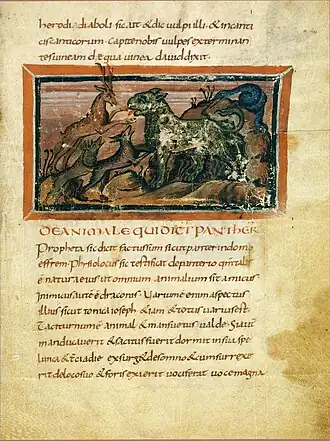 herodi a diaboli sic ait & dic vulpi illi & in canti
cis canticorum. Capite nobis vulpes exterminan
tes vineam d& qua vinea david dixit.
DE ANIMALE QUI DICT PANTHER
Propheta sic dicit factus sum sicut panter in domo
effrem. Physiologus sic testificat de panterio qm talis
ē natura eius ut omnium animalium sit amicus
Inimicus autē ē draconis Varium ē enim aspectus
illius sicut tonica ioseph & iam
Tacturnum ē animal & mansu&us valde Si autē
manducaverit & saciatus fuerit dormit in sua spe
lunca & tercia die exsurg& de somno & cum surrexe
rit de loco suo & foris exierit vociferat voce magna